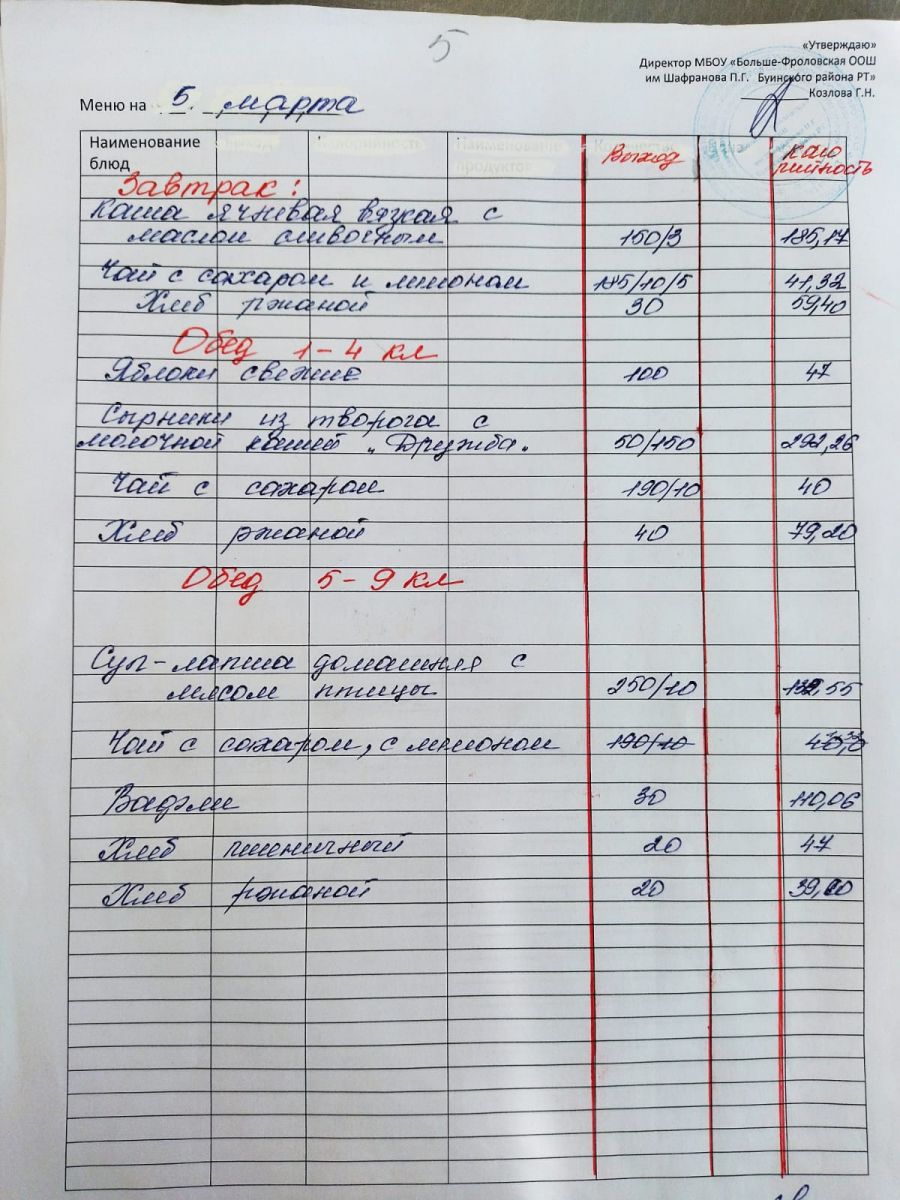 5
«Утверждаю»
Директор МБОУ «Больше-Фроловская ООШ
им Шафранова П.Г. Буинского района РТ»
Козлова Г.Н.
Меню на 5 марта
Наименование блюд Выход Калорийность
Завтрак:
Каша ячневая вязкая с
маслом сливочным 150/3 185,17
Чай с сахаром и лимоном 185/10/5 41,32
Хлеб ржаной 30 59,40
Обед 1-4 кл
Яблоки свежие 100 47
Сырники из творога с
молочной кашей „Дружба" 50/150 292,26
Чай с сахаром 190/10 40
Хлеб ржаной 40 79,20
Обед 5-9 кл
Суп-лапша домашняя с
мясом птицы 250/10
Чай с сахаром, с лимоном 190/10
Вафли 30 110,06
Хлеб пшеничный 20 47
Хлеб ржаной 20